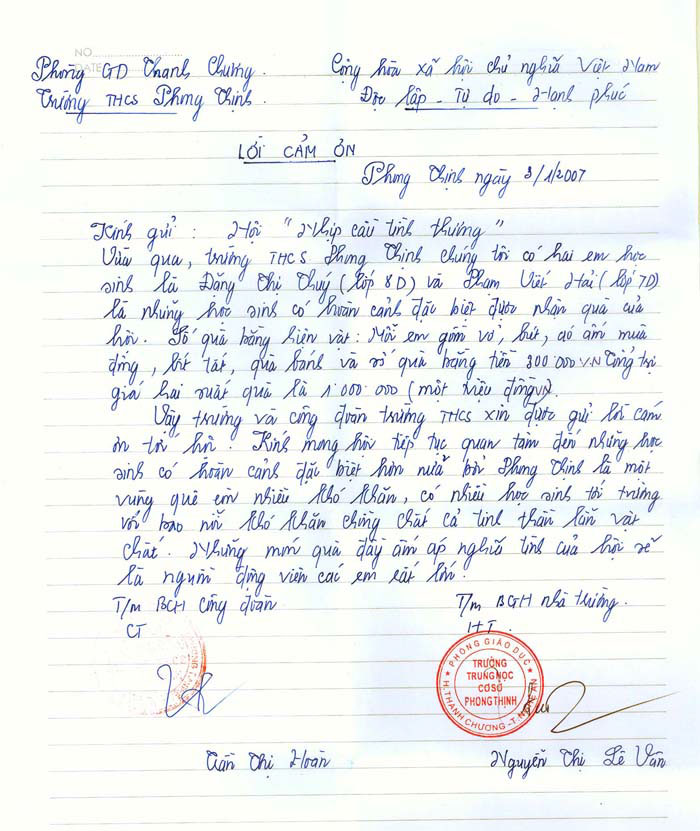 NO
DATE
Phòng GD Thanh Chương. Cộng hòa xã hội chủ nghĩa Việt Nam
Trường THCS Phong Thịnh. Độc lập - Tự do - Hạnh phúc
LỜI CẢM ƠN
Phong Thịnh ngày 3/1/2007
Kính gửi : Hội " Nhịp cầu tình thương "
Vừa qua, trường THCS Phong Thịnh chúng tôi có hai em học
sinh là Đặng Thị Thuý (lớp 8D) và Phạm Viết Hải (lớp 7D)
là những học sinh có hoàn cảnh đặc biệt được nhận quà của
hội. Số quà bằng hiện vật: Mỗi em gồm vở, bút, áo ấm mùa
đông, bít tất, quà bánh và số quà bằng tiền 300.000 VN Tổng trị
giá hai suất quà là 1.000.000 (một triệu đồng VN)
Vậy trường và công đoàn trường THCS xin được gửi lời cảm
ơn tới hội. Kính mong hội tiếp tục quan tâm đến những học
sinh có hoàn cảnh đặc biệt hơn nữa bởi Phong Thịnh là một
vùng quê còn nhiều khó khăn, có nhiều học sinh tới trường
với bao nỗi khó khăn chồng chất cả tinh thần lẫn vật
chất. Những món quà đầy ấm áp nghĩa tình của hội sẽ
là nguồn động viên các em rất lớn.
T/m BCH Công đoàn T/m BGH nhà trường.
CT HT.
PHÒNG GIÁO DỤC
TRƯỜNG
TRUNG HỌC
CƠ SỞ
PHONG THỊNH
H.THANH CHƯƠNG - T.NGHỆ AN
Trần Thị Hoàn Nguyễn Thị Lê Vân